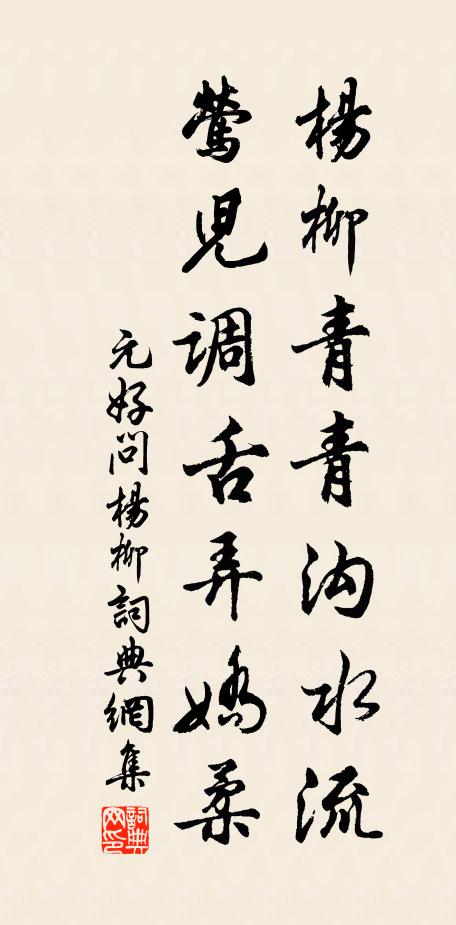 楊柳青青沟水流
鶯児調舌弄嬌柔
元好問楊柳詞典網集
詞典
网印